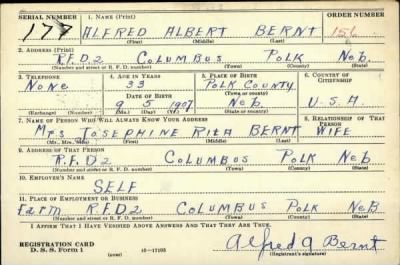 SERIAL NUMBER 1. NAME (Print) ORDER NUMBER
177 ALFRED ALBERT BERNT 156
(First) (Middle) (Last)
2. ADDRESS (Print)
R.F.D 2 COLUMBUS POLK Neb.
(Number and street or R. F. D. number) (Town) (County) (State)
3. TELEPHONE 4. AGE IN YEARS 5. PLACE OF BIRTH 6. COUNTRY OF CITIZENSHIP
NONE 33 POLK COUNTY
DATE OF BIRTH (Town or county)
9 5 1907 Neb U.S.A.
(Exchange) (Number) (Mo.) (Day) (Yr.) (State or country)
7. NAME OF PERSON WHO WILL ALWAYS KNOW YOUR ADDRESS 8. RELATIONSHIP OF THAT PERSON
Mrs JOSEPHINE RITA BERNT WIFE
(Mr., Mrs., Miss) (First) (Middle) (Last)
9. ADDRESS OF THAT PERSON
R.F.D 2 COLUMBUS POLK Neb
(Number and street or R. F. D. number) (Town) (County) (State)
10. EMPLOYER'S NAME
SELF
11. PLACE OF EMPLOYMENT OR BUSINESS
Farm R.F.D. 2 COLUMBUS POLK NeB
(Number and street or R. F. D. number) (Town) (County) (State)
I AFFIRM THAT I HAVE VERIFIED ABOVE ANSWERS AND THAT THEY ARE TRUE.
REGISTRATION CARD
D. S. S. Form 1 (over) 16—17105 Alfred A Bernt
(Registrant's signature)